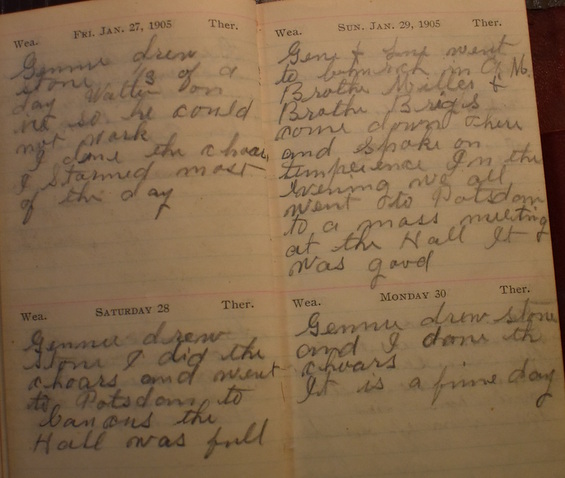 Wea. Fri. Jan. 27, 1905 Ther.
Gennie drew
stone 3 of a
day Watter on
so he could
not work
I done the choars
I stormed most
of the day
Wea. Saturday 28 Ther.
Gennie drew
stone I did the
choars and went
to Potsdam to
the
Hall was full
Sun. Jan. 29, 1905 Ther.
Gene & went
to in
Brothe Miller &
Brothe Brigs
come down there
and spoke on
temperence In the
evening we all
went to Potsdam
to a mass meeting
at the Hall It
was good
Wea. Monday 30 Ther.
Gennie drew stone
and I done th
choars
It is a fine day